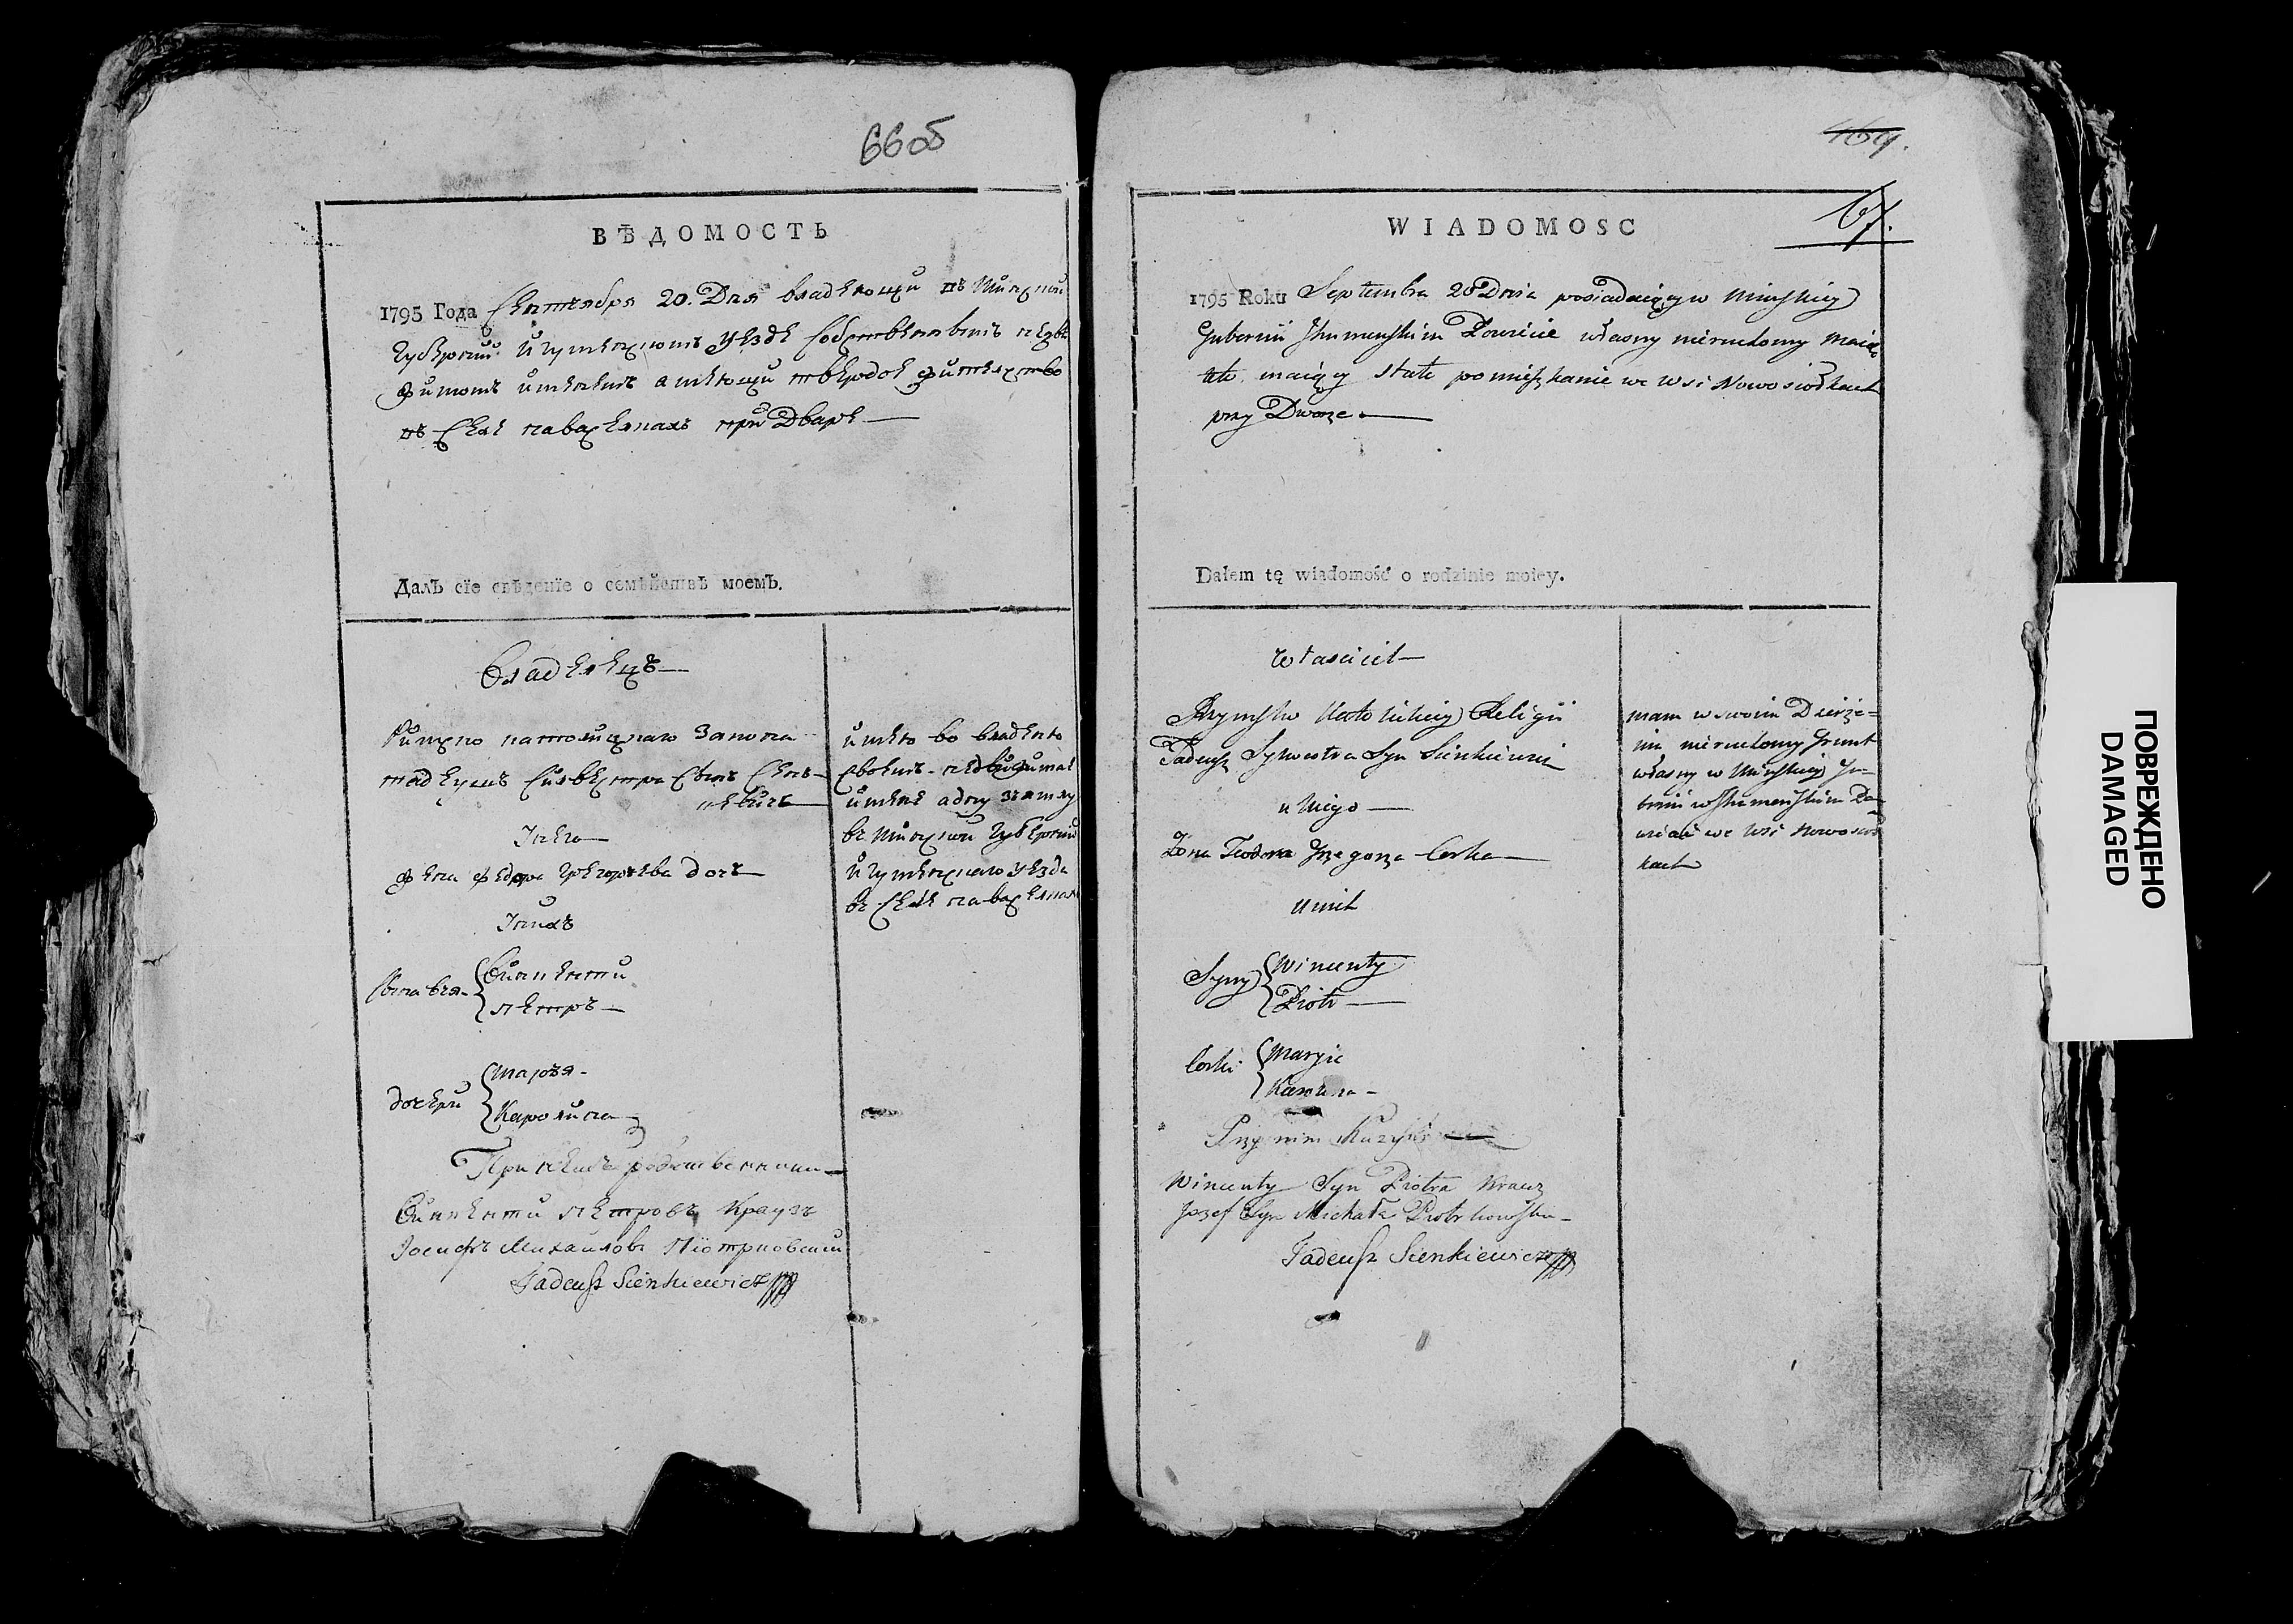 66об
ВѢДОМОСТЬ
1795 Года Сентября 20. Дня владеющи въ Минской
Губерний Игуменскомъ Уезде Собственнымъ недви
жимымъ имениемъ
въ Селе при Дваре
ДалЪ сїе свѣденїе о семѣйствѣ моемЪ.
Владелецъ
Римско католицкаго Закона
тадеушъ Сильвестра Сынъ Сенъ-
кевичъ
Унего
жена федора Григорьева дочь
Унихъ
Сынавья
Викенти
петръ
дочери
марья
Каролина
При немъ родственники
Викенти петровъ Краузъ
Іосифъ Михайловъ Піотрковский
Tadeusz Sienkiewicz
имею во владению
своемъ недвижимае
имение адну землю
въ Минской Губерний
Игуменскаго Уезда
въ Селе
169.
67.
WIADOMOSC
1795 Roku Septembra 20 Dnia posiadaiący w Minskiey
Gubernii Ihumenskim Powiecie własny nieruchomy Maią
tek maiący stałe pomieszkanie we wsi Nowosiołkach
przy Dworze
Dałem tę wiadomość o rodzinie moiey.
Własciciel
Rzymsko Katolickiey Religii
Tadeusz Sylwestra Syn Sienkiewicz
u niego
Żona Teodora Grzegorza Corka
u nich
Syny
Wincenty
Piotr
Corki
Maryia
Karolina
Przy nim
Wincenty Syn Piotra Krauz
Jozef Syn Michała Piotrkowski
Tadeusz Sienkiewicz
mam w swoim Dzierże-
niu nieruchomy Grunt
własny w Minskiey Gu-
bernii w Ihumenskim Po-
wiecie we wsi Nowosioł
kach
ПОВРЕЖДЕНО
DAMAGED